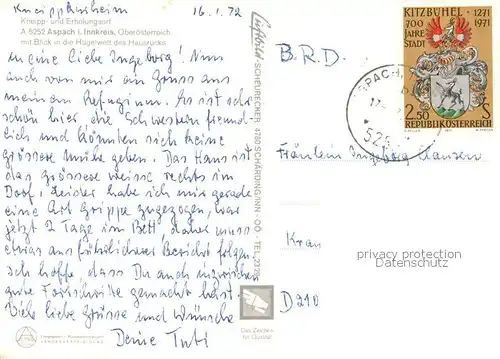 Kneippkurheim 16.1.72
Kneipp- und Erholungsort
A 5252 Aspach i. Innkreis, Oberösterreich
mit Blick in die Hügelwelt des Hausrucks
Meine liebe Ingeborg! Nun
auch von mir ein Gruss aus
meinem Refugium. Es ist sehr
schön hier die Schwestern freund-
lich und könnten sich keine
grössere Mühe geben. Das Haus ist
das grössere weisse rechts im
Dorf. Leider habe ich mir gerade
eine Art Grippe zugezogen, war
jetzt 2 Tage im Bett, daher muss
etwas ausführlicher Bericht folgen.
Ich hoffe, dass Du auch inzwischen
gute Fortschritte gemacht hast.
Viele liebe Grüsse und Wünsche
Deine Tuti
Luftbild SCHEURECKER 4780 SCHÄRDING/INN - OÖ - TEL.
Das Zeichen
für Qualität
KITZBÜHEL 1271
700 1971
JAHRE
STADT
2.50 S
REPUBLIK ÖSTERREICH
ASPACH
B.R.D.
Fräulein Ingeborg Hansen
Kran
D 240
privacy protection
Datenschutz